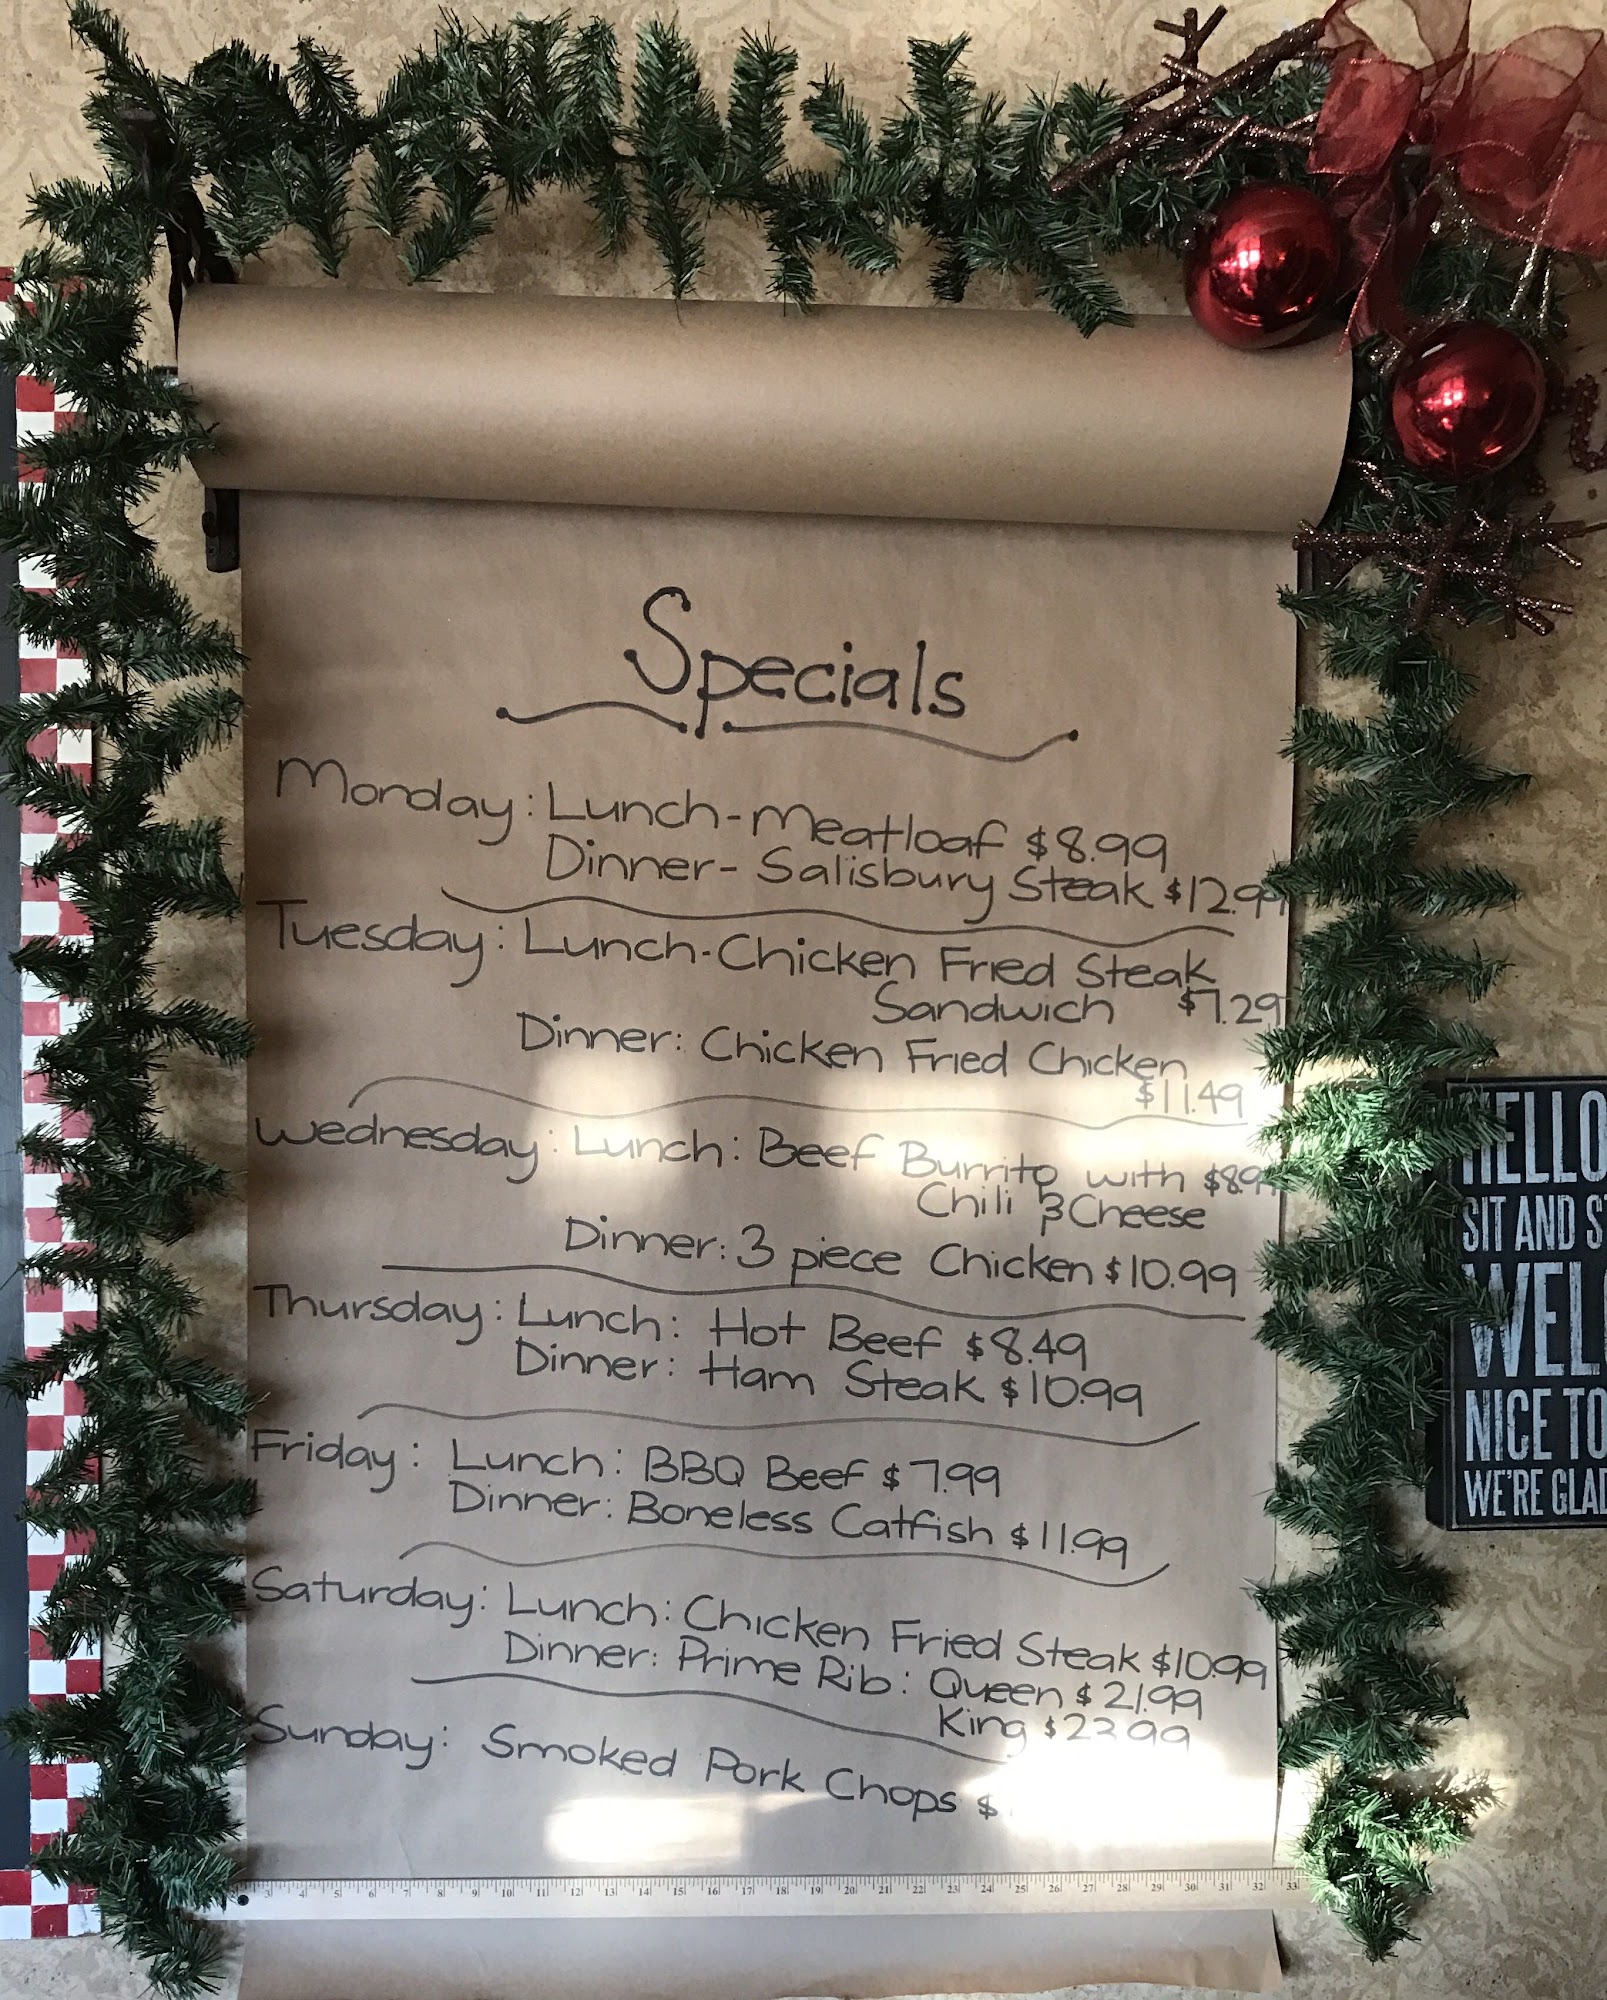 Specials
Monday: Lunch-Meatloaf $8.99
Dinner- Salisbury Steak $12.99
Tuesday: Lunch-Chicken Fried Steak
Sandwich $7.29
Dinner: Chicken Fried Chicken
$11.49
Wednesday: Lunch: Beef Burrito with $8.99
Chili & Cheese
Dinner: 3 piece Chicken $10.99
Thursday: Lunch: Hot Beef $8.49
Dinner: Ham Steak $10.99
Friday: Lunch: BBQ Beef $7.99
Dinner: Boneless Catfish $11.99
Saturday: Lunch: Chicken Fried Steak $10.99
Dinner: Prime Rib: Queen $21.99
King $23.99
Sunday: Smoked Pork Chops $
3 4 5 6 7 8 9 10 11 12 13 14 15 16 17 18 19 20 21 22 23 24 25 26 27 28 29 30 31 32 33
HELLO
SIT AND
NICE TO
WE'RE GLAD